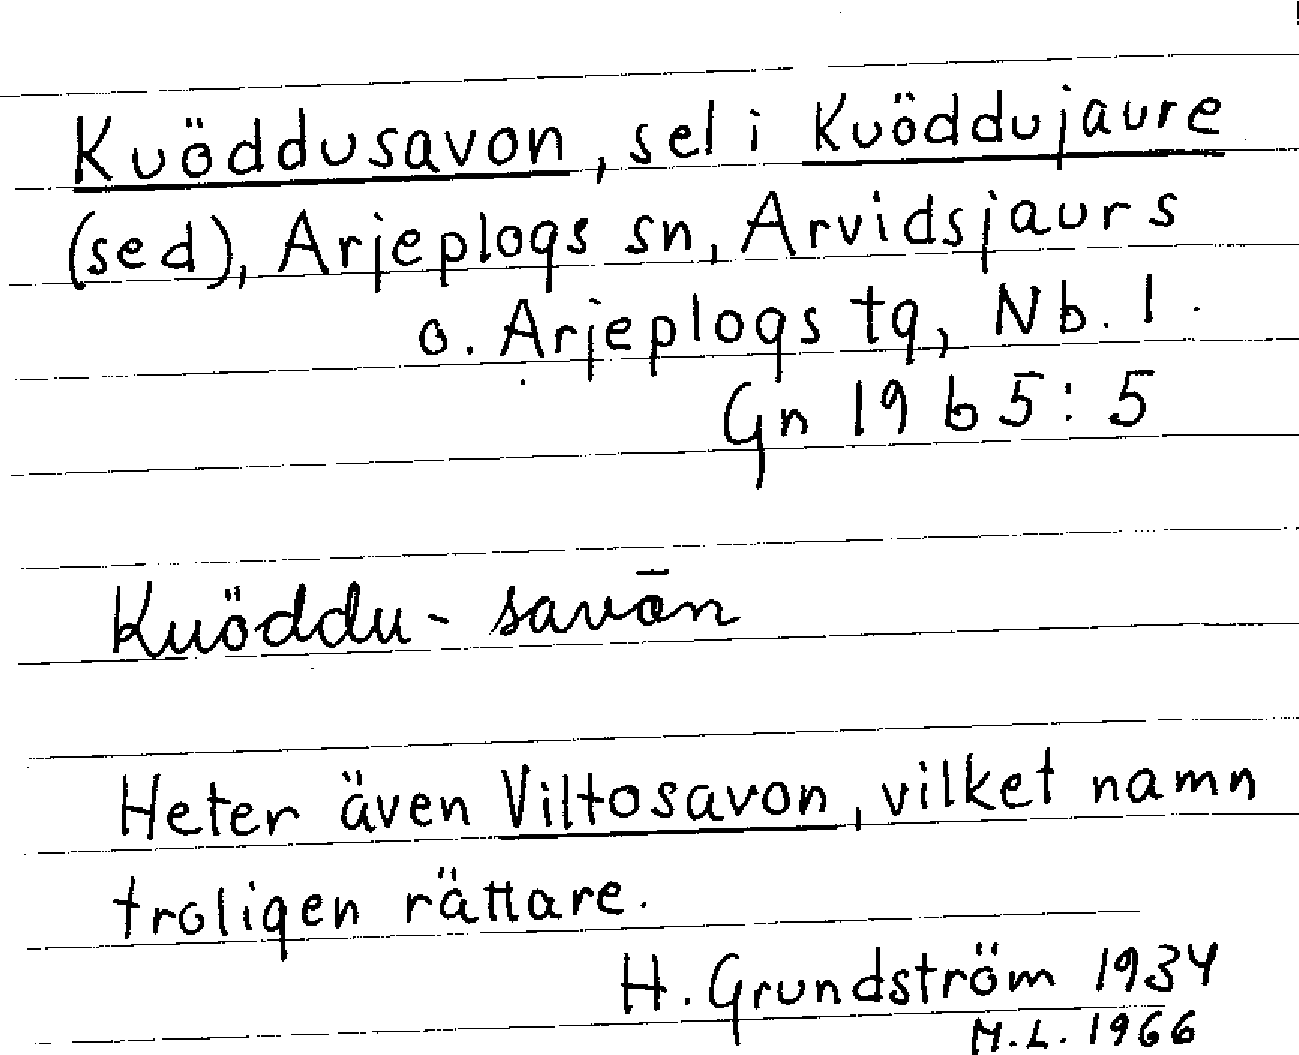 Kuöddusavon, sel i Kuöddujaure
(sed), Arjeplogs sn, Arvidsjaurs
o. Arjeplogs tg, Nb. l.
Gn 1965:5
Kuöddu-savōn
Heter även Viltosavon, vilket namn
troligen rättare.
H. Grundström 1934
M.L. 1966